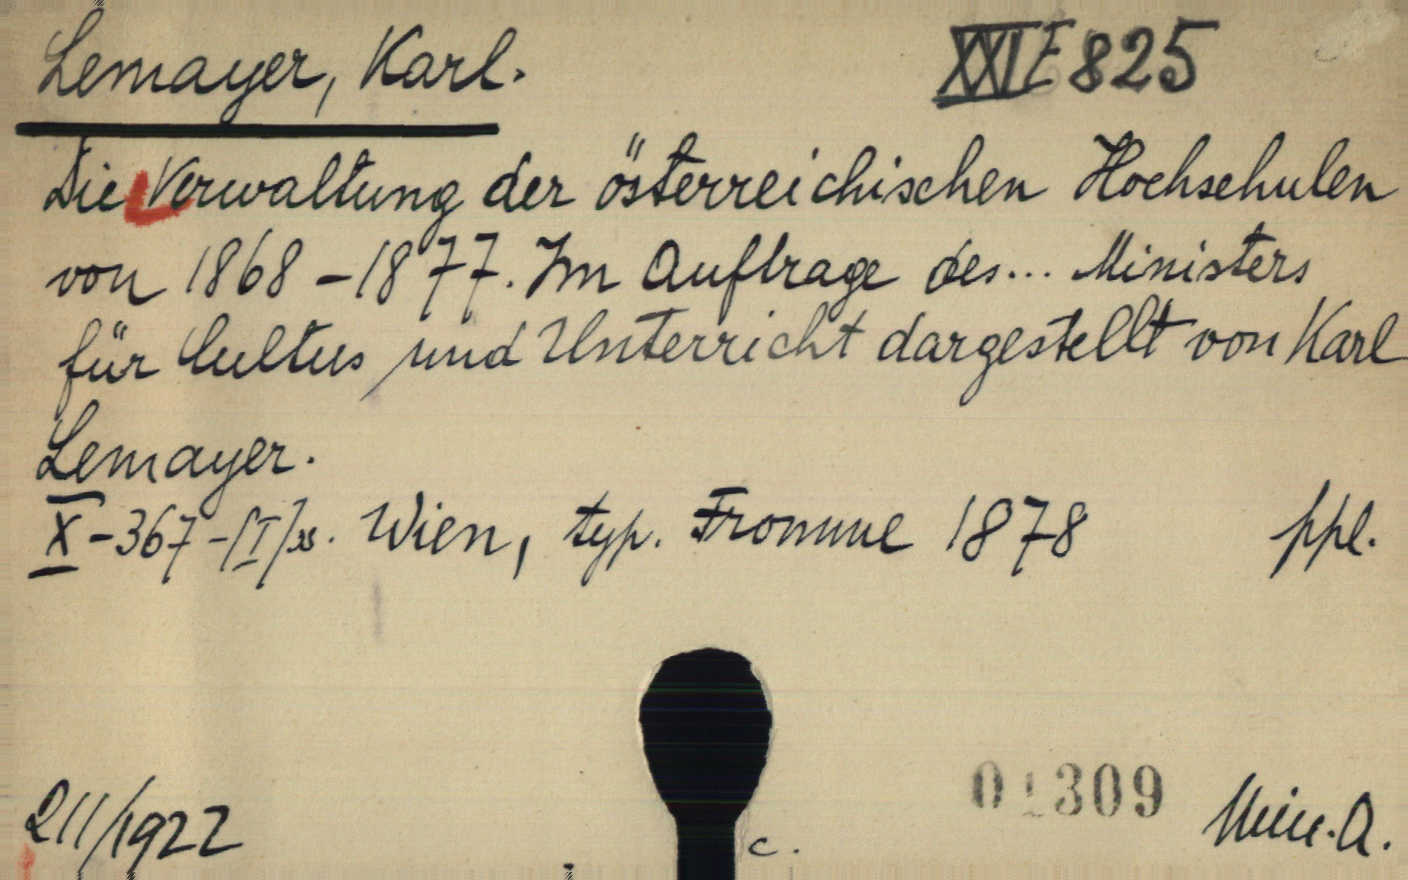 Lemayer, Karl.
XXI E 825
Die Verwaltung der österreichischen Hochschulen
von 1868-1877. Im Auftrage des... Ministers
für Cultus und Unterricht dargestellt von Karl
Lemayer.
X-367-[I]
Wien, typ. Fromme 1878
ppl.
01309
211/1922
c.